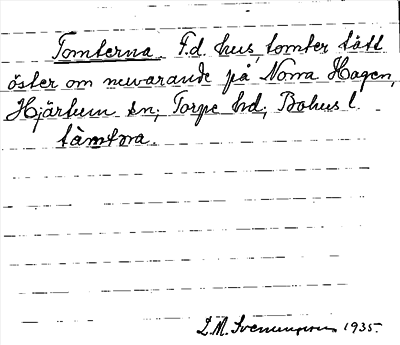 Tomterna. F.d. hus, tomter tätt
öster om nuvarande på Norra Hagen,
Hjärtum sn, Torpe hd, Bohus l.
tåmtɷa.
L.M. Svenungsson 1935.